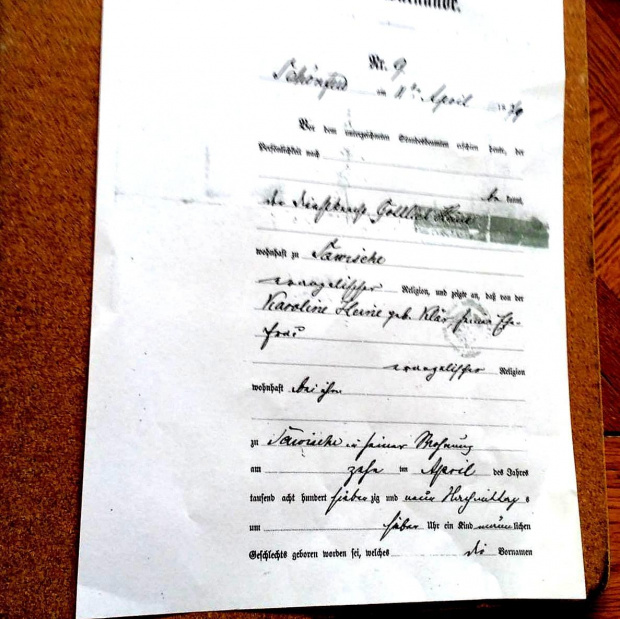 Nr. 9
Schönfeld am 11ten April 1879
Vor dem unterzeichneten Standesbeamten erschien heute, der
Persönlichkeit nach
be kannt,
der Dienstknecht Gottlieb Heine
wohnhaft zu Tawische
evangelischer Religion, und zeigte an, daß von der
Karoline Heine geb. Klär seiner Ehe-
frau
evangelischer Religion
wohnhaft bei ihm
zu Tawische in seiner Wohnung
am zehn ten April des Jahres
tausend acht hundert sieben zig und neun Nachmittag s
um sieben Uhr ein Kind männ lichen
Geschlechts geboren worden sei, welches die Vornamen